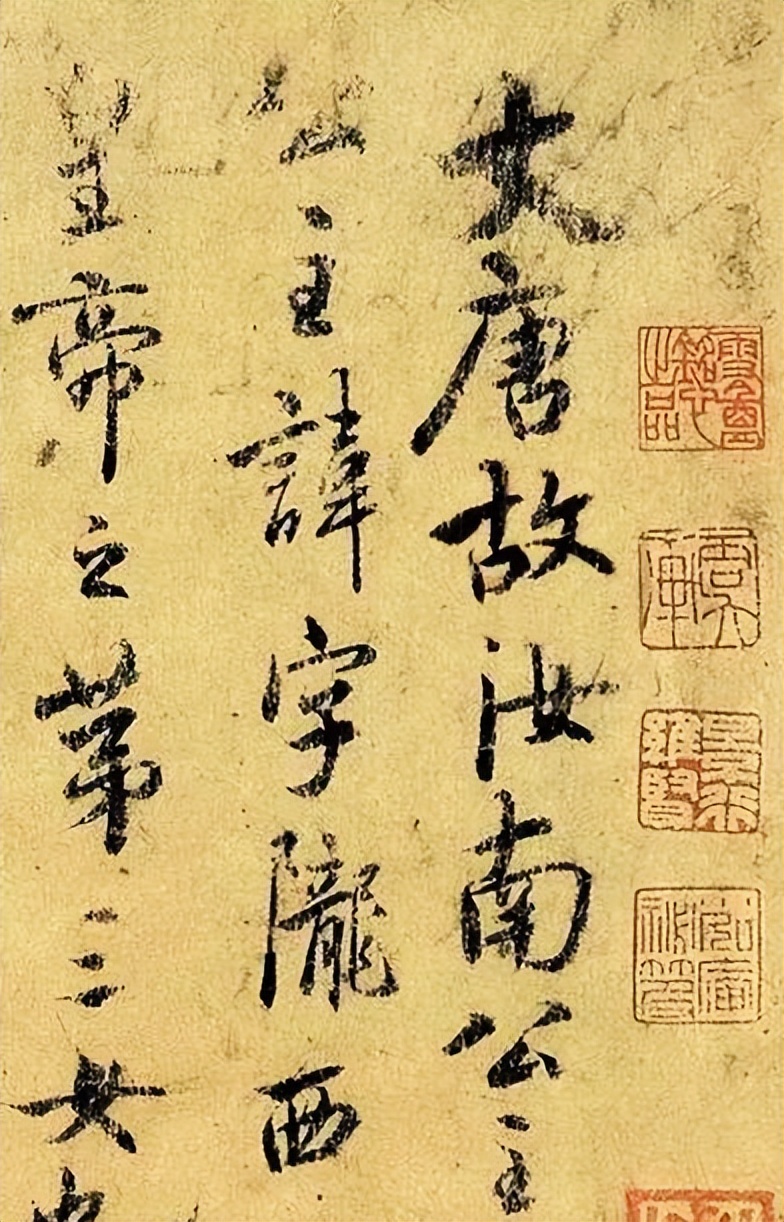 大唐故汝南公主
公主諱字隴西
皇帝之第三女